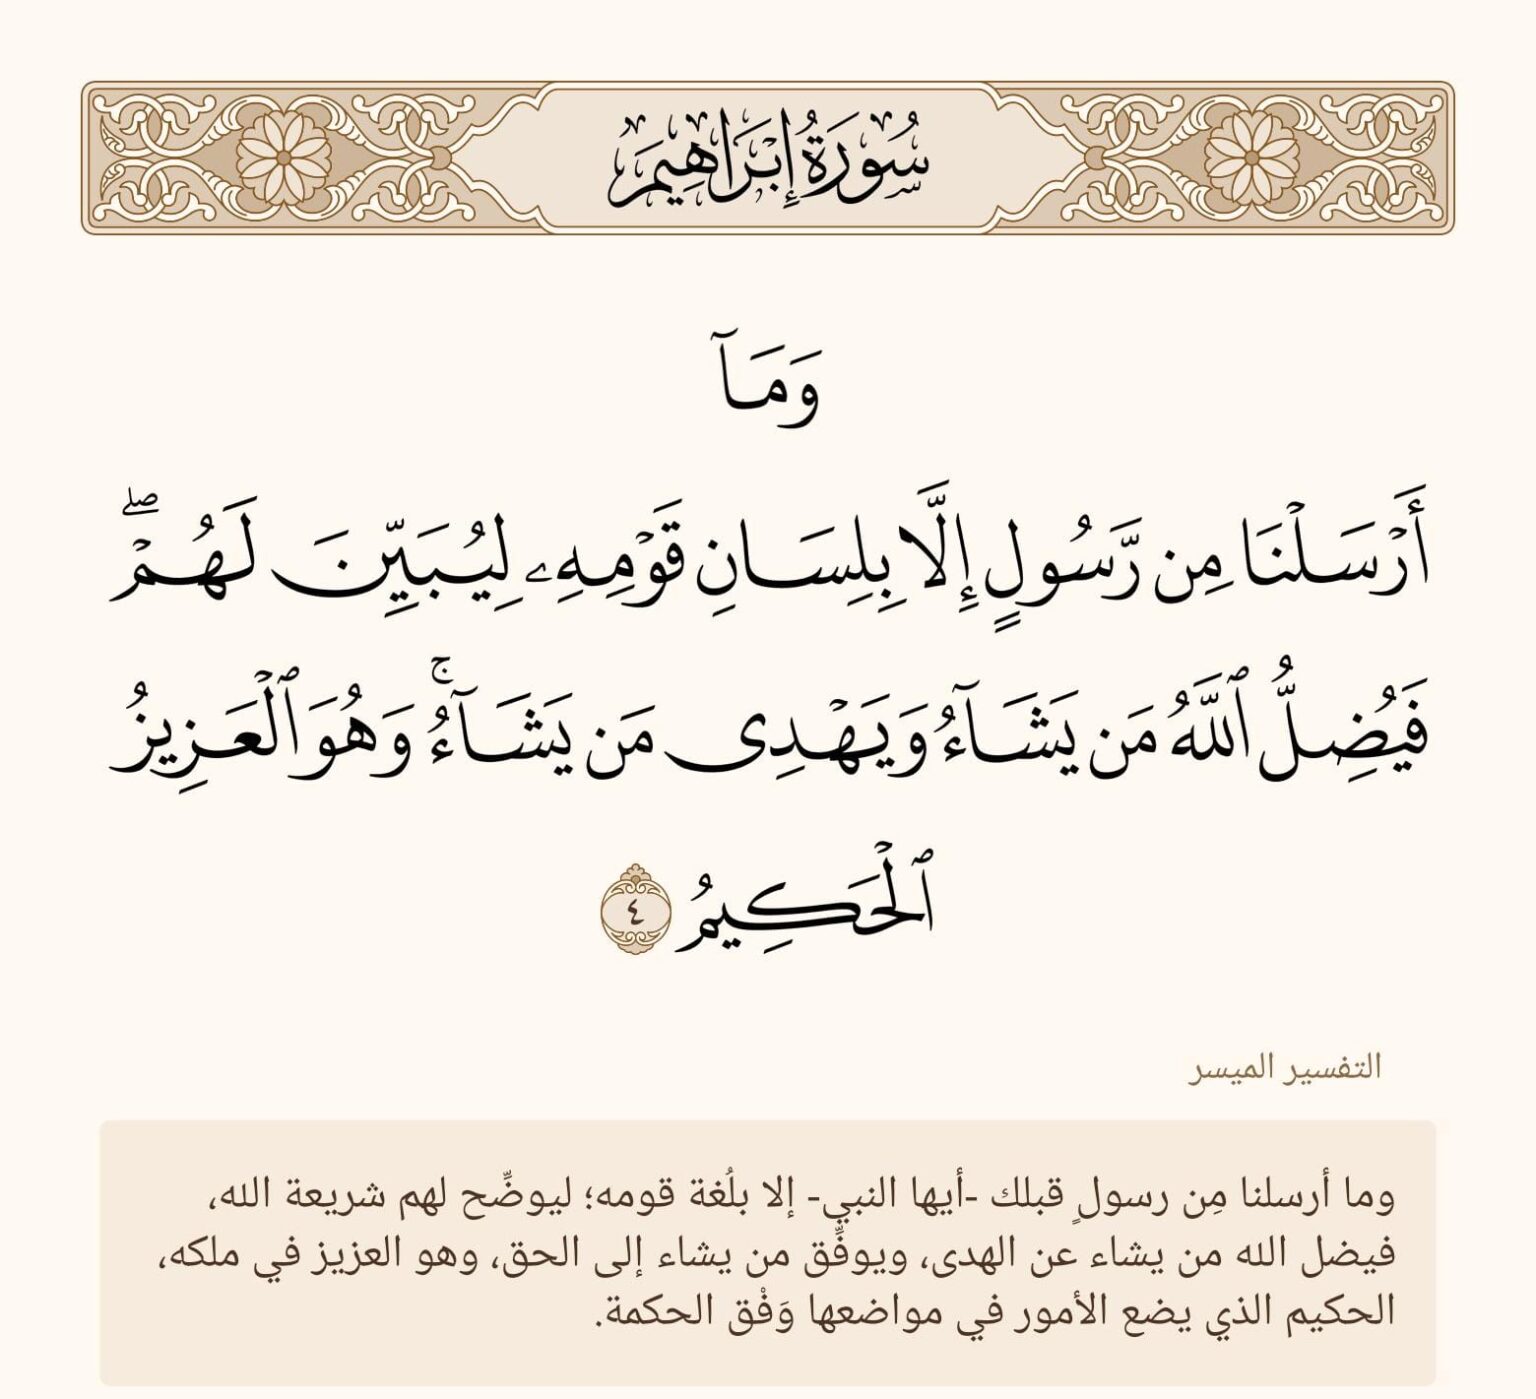 سُورَةُ إِبْرَاهِيمَ
وَمَآ
أَرْسَلْنَا مِن رَّسُولٍ إِلَّا بِلِسَانِ قَوْمِهِۦ لِيُبَيِّنَ لَهُمْۖ
فَيُضِلُّ ٱللَّهُ مَن يَشَآءُ وَيَهْدِى مَن يَشَآءُۚ وَهُوَ ٱلْعَزِيزُ
ٱلْحَكِيمُ ٤
التفسير الميسر
وما أرسلنا مِن رسولٍ قبلك -أيها النبي- إلا بلُغة قومه؛ ليوضِّح لهم شريعة الله،
فيضل الله من يشاء عن الهدى، ويوفِّق من يشاء إلى الحق، وهو العزيز في ملكه،
الحكيم الذي يضع الأمور في مواضعها وَفْق الحكمة.